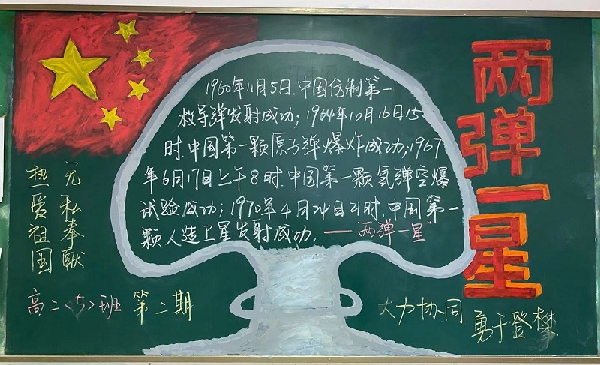 1960年11月5日.中国仿制第一
枚导弹发射成功;1964年10月16日15
时.中国第一颗原子弹爆炸成功;1967
年6月17日上午8时.中国第一颗氢弹空爆
试验成功;1970年4月24日21时.中国第一
颗人造卫星发射成功.——两弹一星
两弹一星
热爱祖国
无私奉献
高二<5>班 第二期
大力协同
勇于登攀